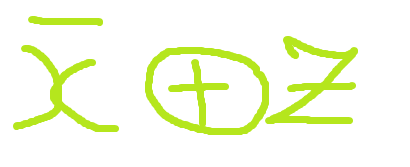 x̄ ⊕ Z